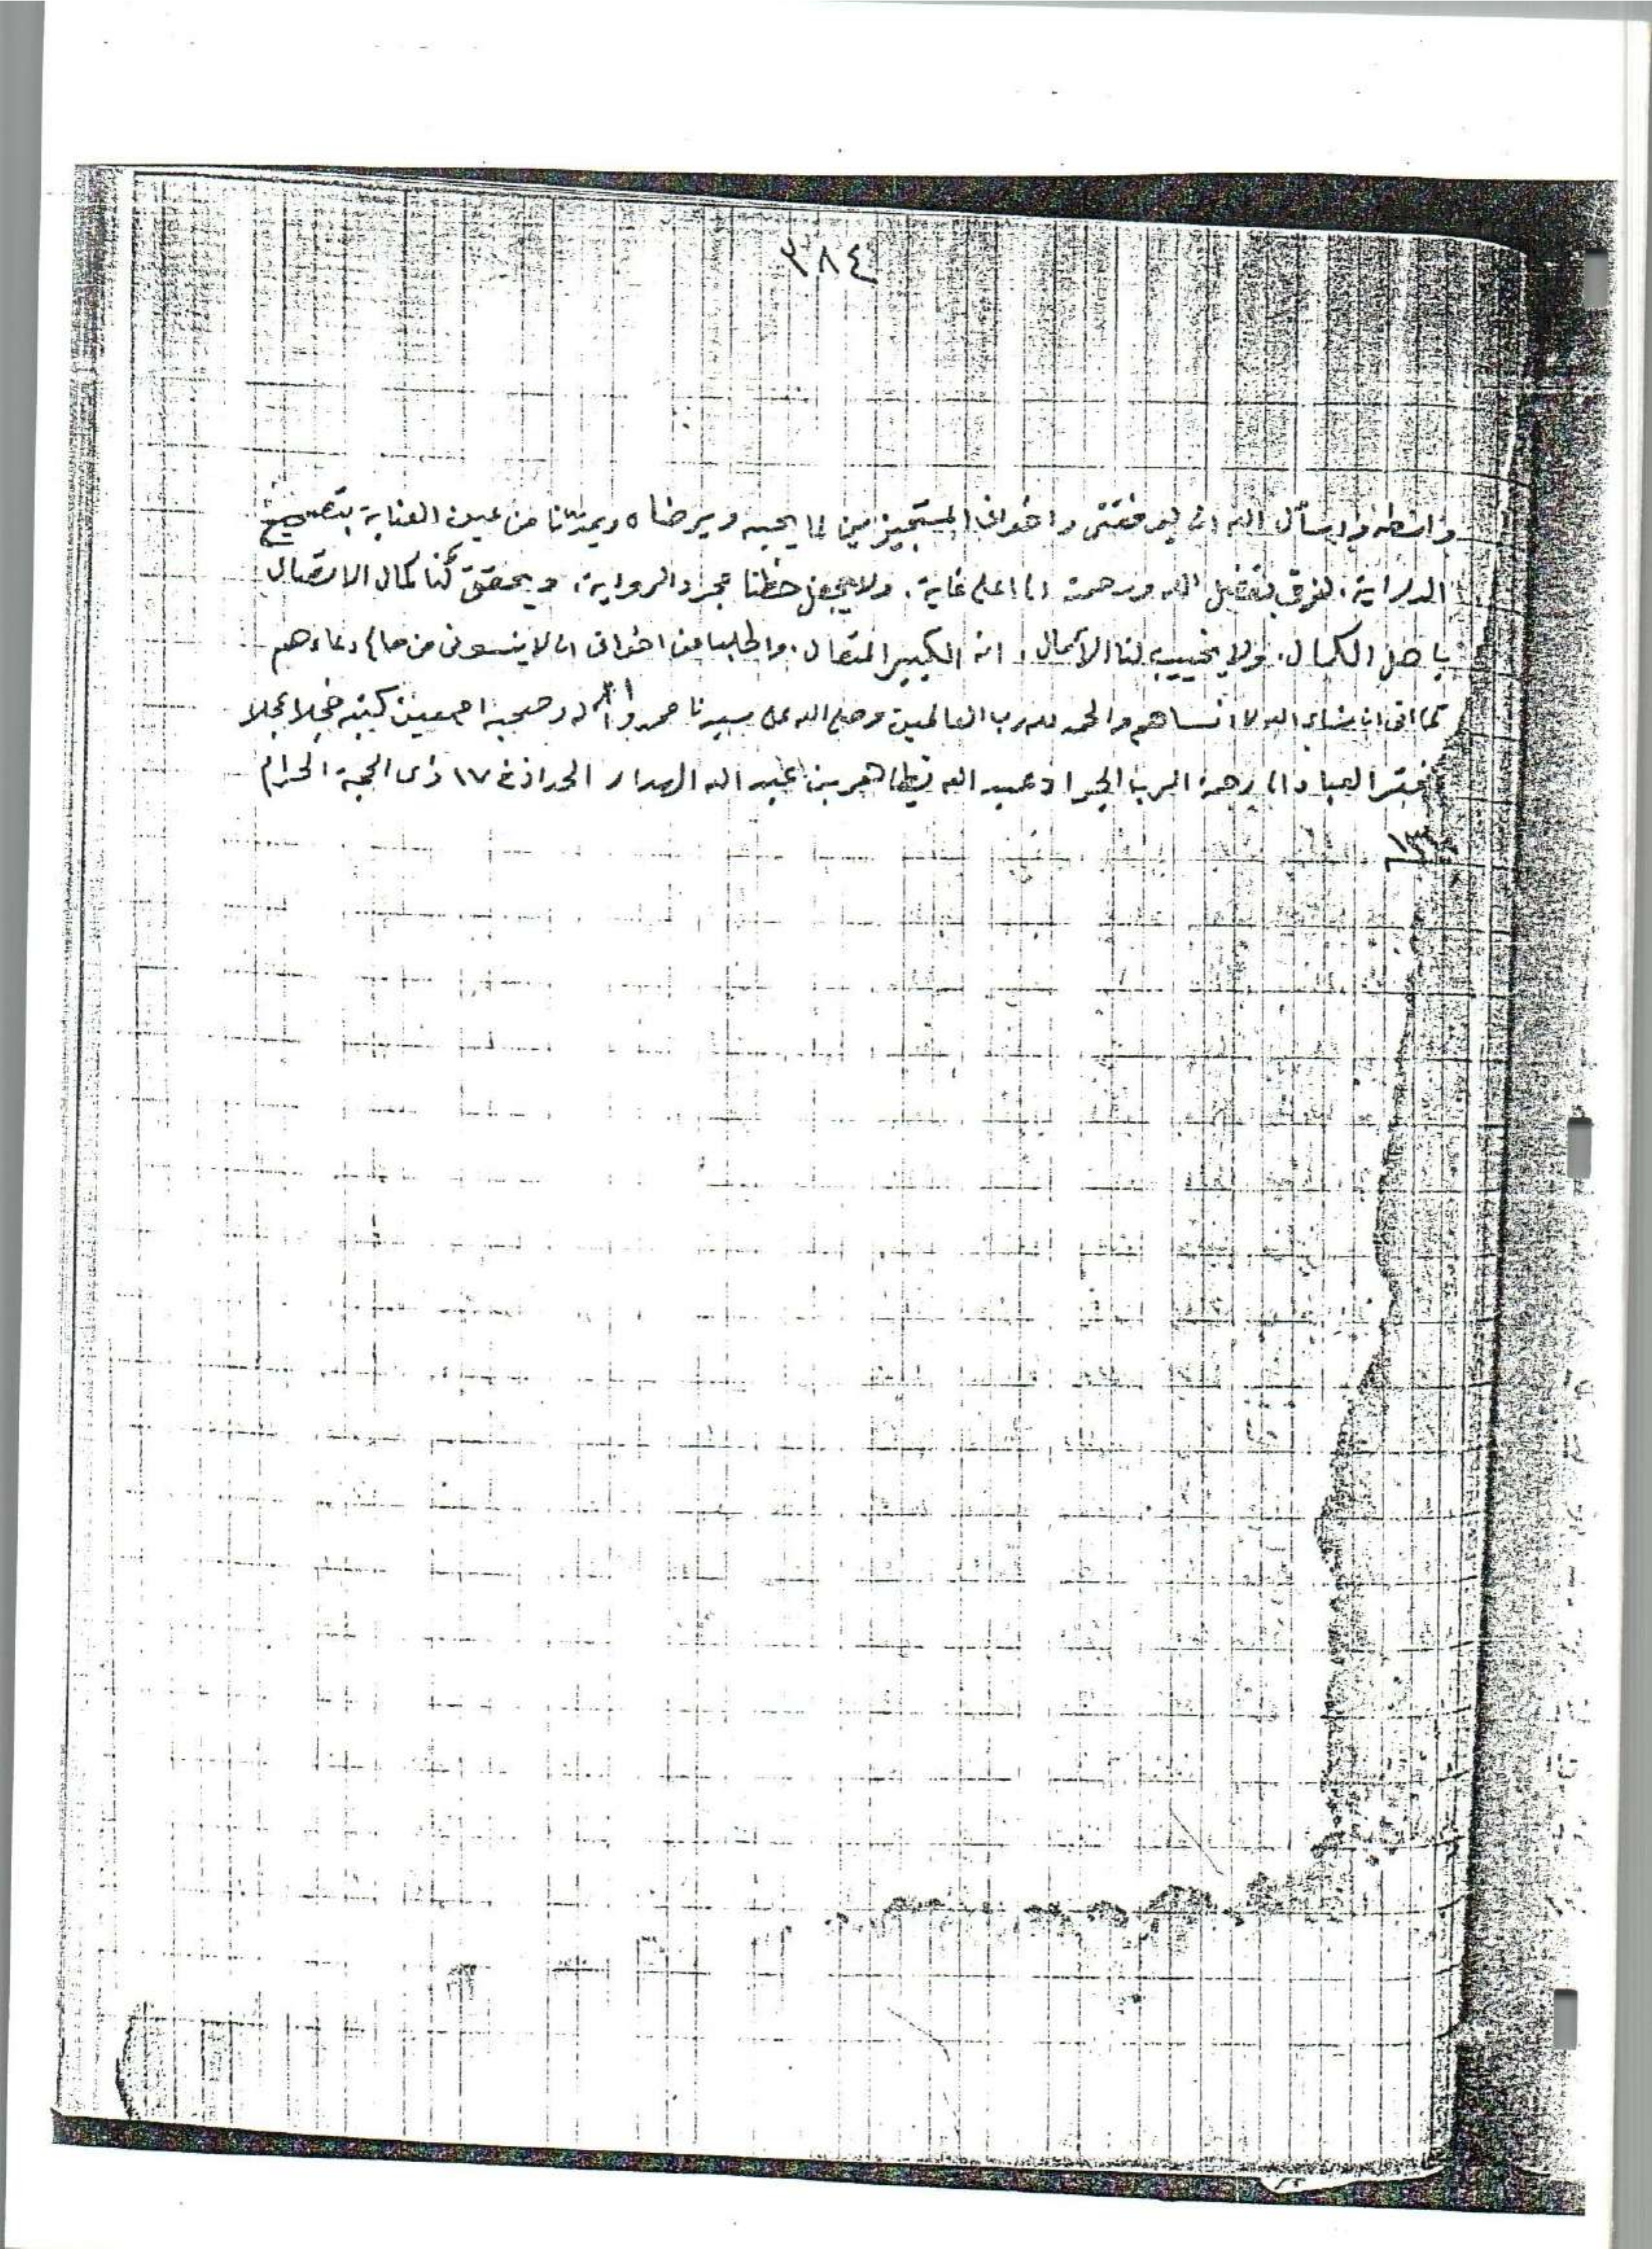 ٣٨٤
واسطه واسأل الله ان يوفقنى واخوانى المستجيزين لما يحبه ويرضاه ويمدنا من عين العناية بتصحيح
الدراية، لنرقى بفضل الله ورحمته الى اعلى غاية. ولا يجعل حظنا مجرد الرواية، ويحقق لنا كمال الاتصال
باهل الكمال. ولا يخيب لنا الآمال، انه الكبير المتعال. واطلب من اخوانى ان لا ينسونى من صالح دعاءهم
كما انى ان شاء الله لا انساهم والحمد لله رب العالمين وصلى الله على سيدنا محمد وآله وصحبه اجمعين كتبه خجلا عجلا
افقر العباد الى رحمة الرب الجواد عبد الله بن طاهر بن عبد الله الهدار الحداد فى ١٧ ذى الحجة الحرام